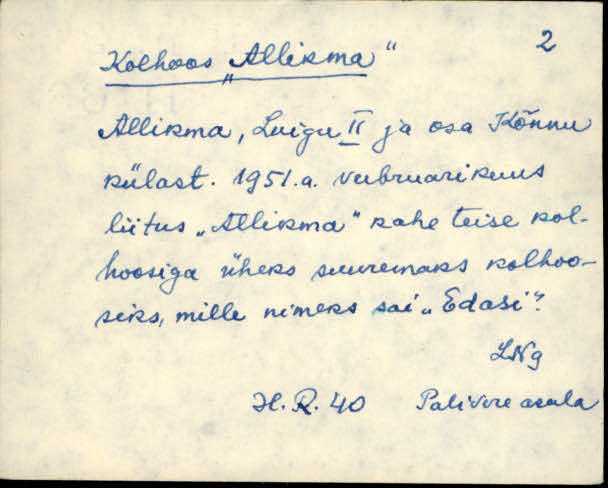 2
Kolhoos „Allikma"
Allikma, Luigu II ja osa Kõnnu
külast. 1951.a. veebruarikuus
liitus „Allikma" kahe teise kol-
hoosiga üheks suuremaks kolhoo-
siks, mille nimeks sai „Edasi".
LNg
H.R. 40 Palivere asula